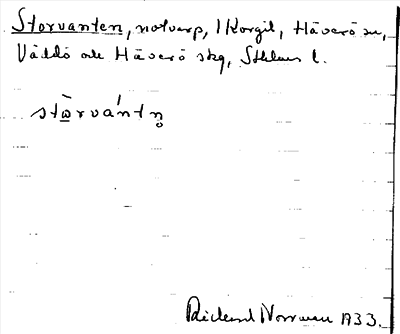 Storvanten, notvarp, 1 Korgil, Häverö sn,
Väddö och Häverö skg, Sthlms l.
stòrvántn̥
Rickard Norrman 1933.